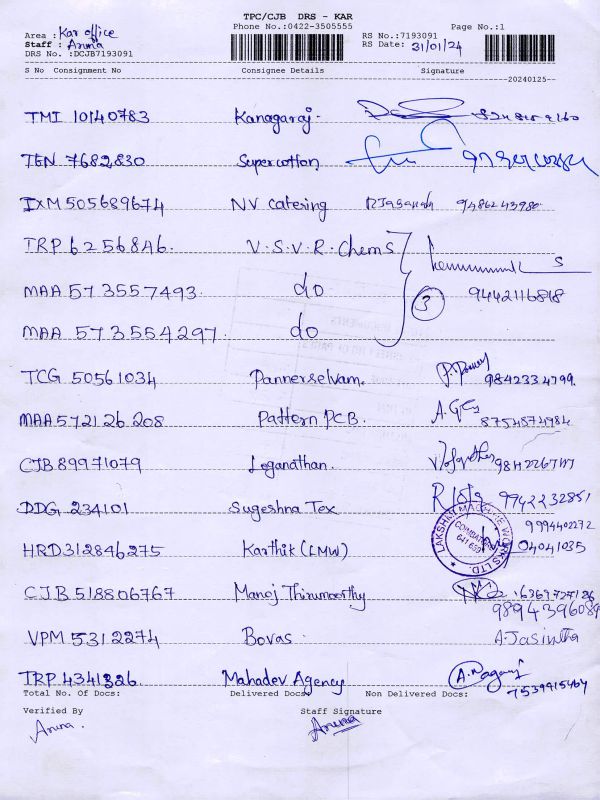 TPC/CJB DRS - KAR
Phone No.:0422-3505555 Page No.:1
Area : Kar office RS No.:7193091
Staff : Aruna RS Date: 31/01/24
DRS No. :DCJB7193091
S No Consignment No Consignee Details Signature
20240125--
TMI 10140783 Kanagaraj.
TEN 7682830 Supercotton
IXM 505689674 NV Catering
TRP 6256846. V.S.V.R.Chems S
MAA 573557493. do 3 9442116818
MAA 573554297. do
TCG 50561034 Pannerselvam. 9842334799.
MAA 572126208 Pattern PCB. 8754874984
CJB 89971079 Loganathan.
DDG 234101 Sugeshna Tex 9942232851
HRD312846275 Karthik (LMW) LAKSHMI MACHINE WORKS LTD. COIMBATORE 04041035
CJB 518806767 Manoj Thirumoorthy 9894396089
VPM 5312274 Bovas. A.Jasintha
TRP 4341326. Mahadev Agency 7539915464
Total No. Of Docs: Delivered Docs: Non Delivered Docs:
Verified By Staff Signature
Aruna. Aruna